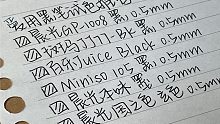 常用黑笔试色
晨光GP-1008 黑 0.5mm
JJJ7-BK 黑 0.5mm
百乐Juice Black 0.5mm
Miniso 105 黑 0.5mm
晨光本味 黑 0.5mm
晨光国之色 玄色 0.5mm